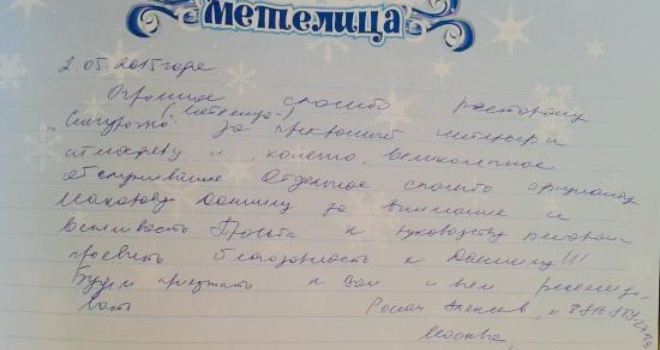 Метелица
2.05.2015 года
Огромное спасибо ресторану
(Метелица)
за прекрасный интерьер и
атмосферу и, конечно, великолепное
обслуживание Отдельное спасибо
Даниилу за внимание и
вежливость Просьба к руководству
проявить благодарность к Даниилу!!!
Будем приезжать к Вам и всем рекомендо-
вать Роман Алексеев,
Москва,